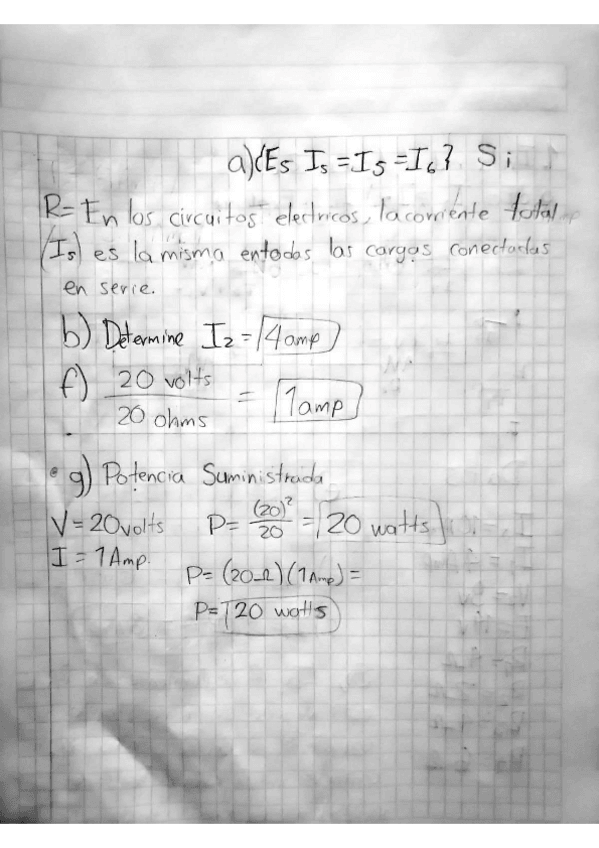 a) ¿Es Is = I5 = I6? Si
R= En los circuitos electricos, la corriente total
(Is) es la misma en todas las cargas conectadas
en serie.
b) Determine I2 = 4 amp
f) 20 volts
20 ohms
= 1 amp
g) Potencia Suministrada
V = 20 volts P= (20)²/20 = 20 watts
I = 1 Amp.
P= (20 Ω)(1 Amp) =
P= 20 watts